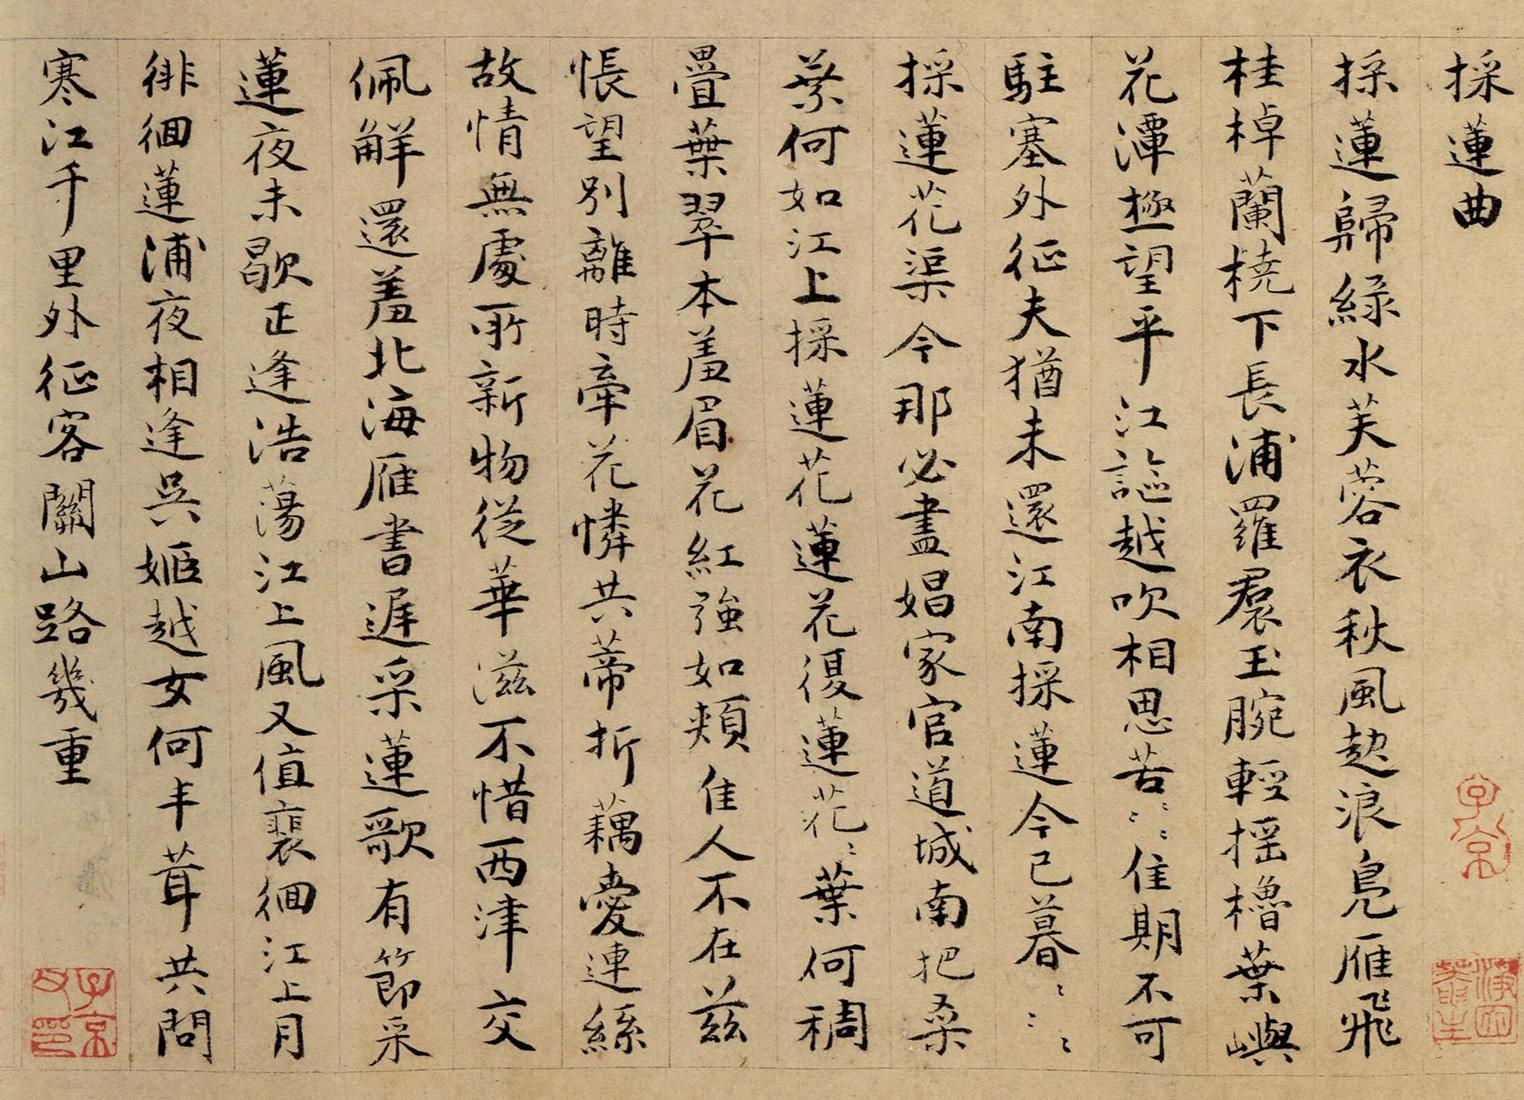 採蓮曲
採蓮歸綠水芙蓉衣秋風起浪鳧雁飛
桂棹蘭橈下長浦羅裠玉腕輕揺櫓葉嶼
花潭極望平江謳越吹相思苦〻〻佳期不可
駐塞外征夫猶未還江南採蓮今已暮〻〻〻
採蓮花渠今那必盡娼家官道城南把桑
葉何如江上採蓮花蓮花復蓮花〻葉何稠
疊葉翠本羞眉花紅強如頰佳人不在兹
悵望別離時牽花憐共蒂折藕愛連絲
故情無處所新物從華滋不惜西津交
佩解還羞北海雁書遲采蓮歌有節采
蓮夜未歇正逢浩蕩江上風又值裵徊江上月
徘徊蓮浦夜相逢吳姬越女何丰茸共問
寒江千里外征客關山路幾重
子京
子京父印